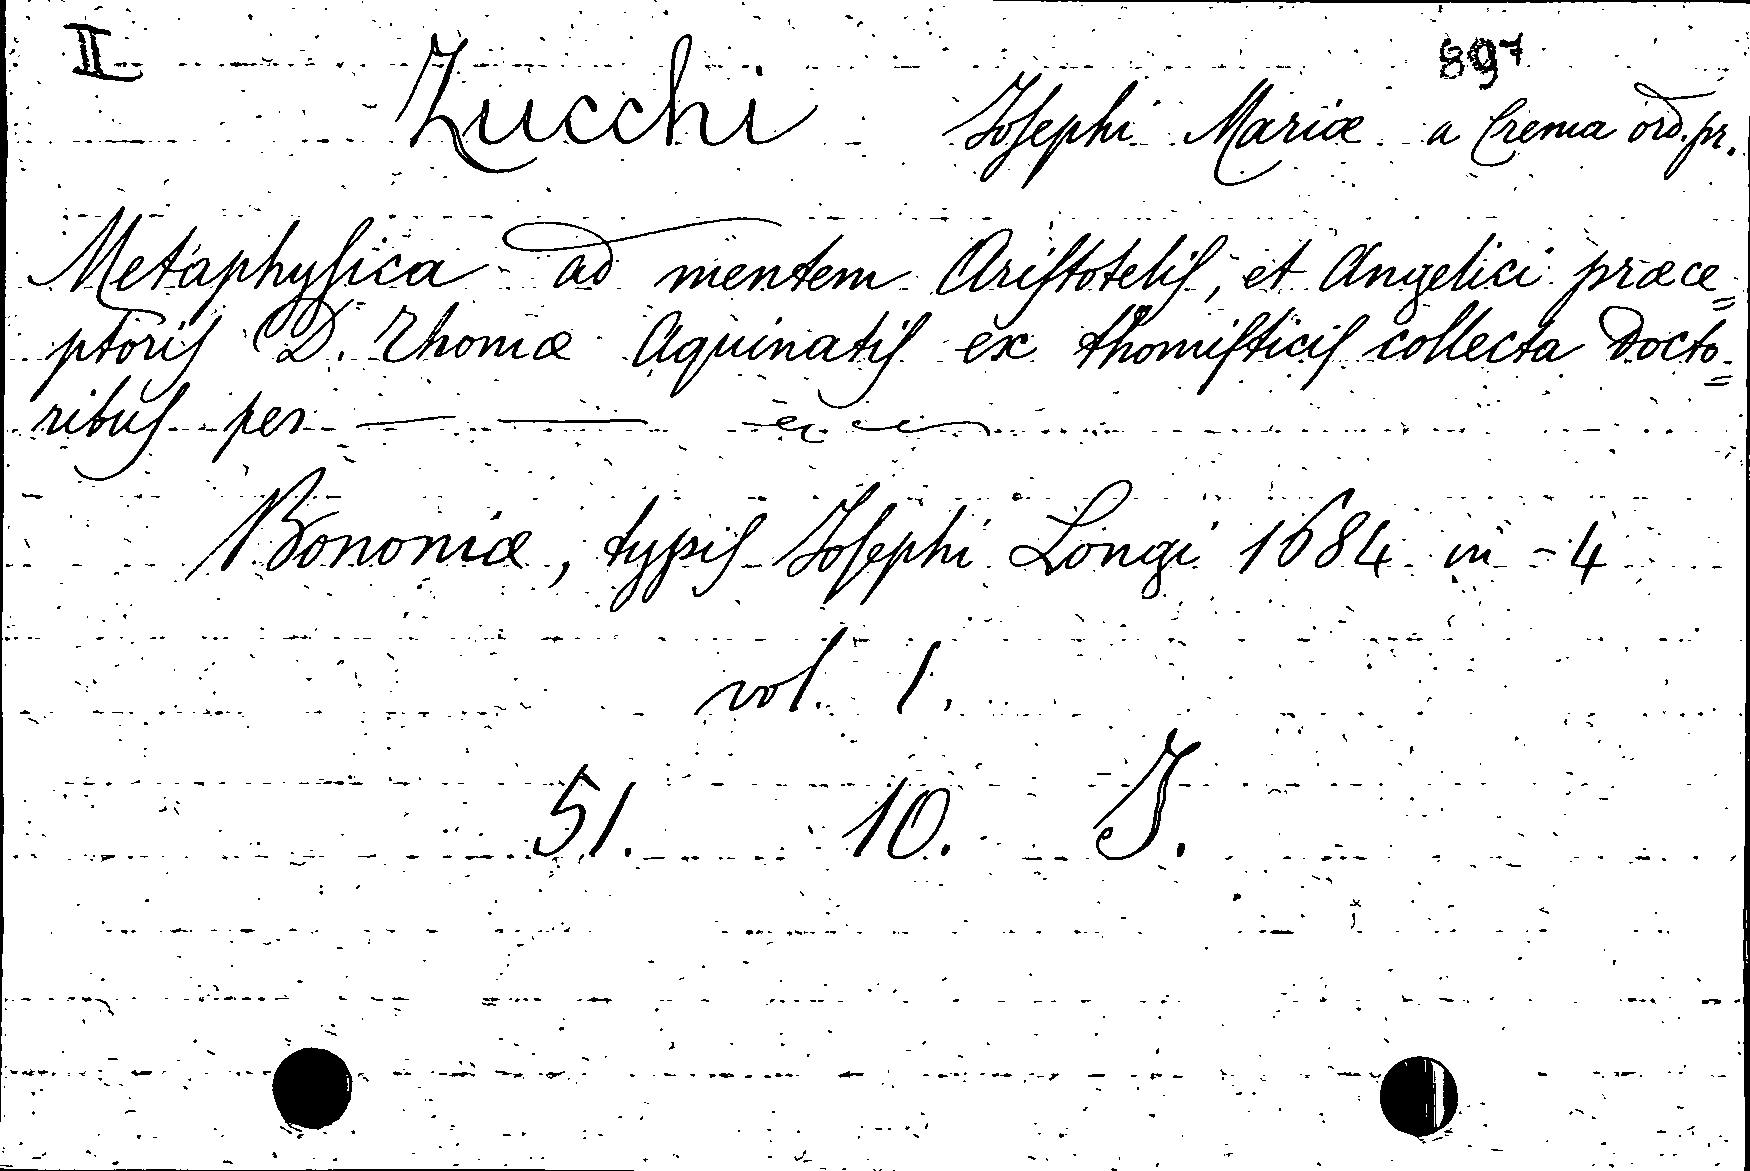 II 897
Zucchi Josephi Mariæ a Crema ord. pr.
Metaphysica ad mentem Aristotelis, et Angelici præce=
ptoris D. Thomæ Aquinatis ex thomisticis collecta docto=
ribus per — —
Bononiæ, typis Josephi Longi 1684 in-4
vol. 1.
51. 10. J.